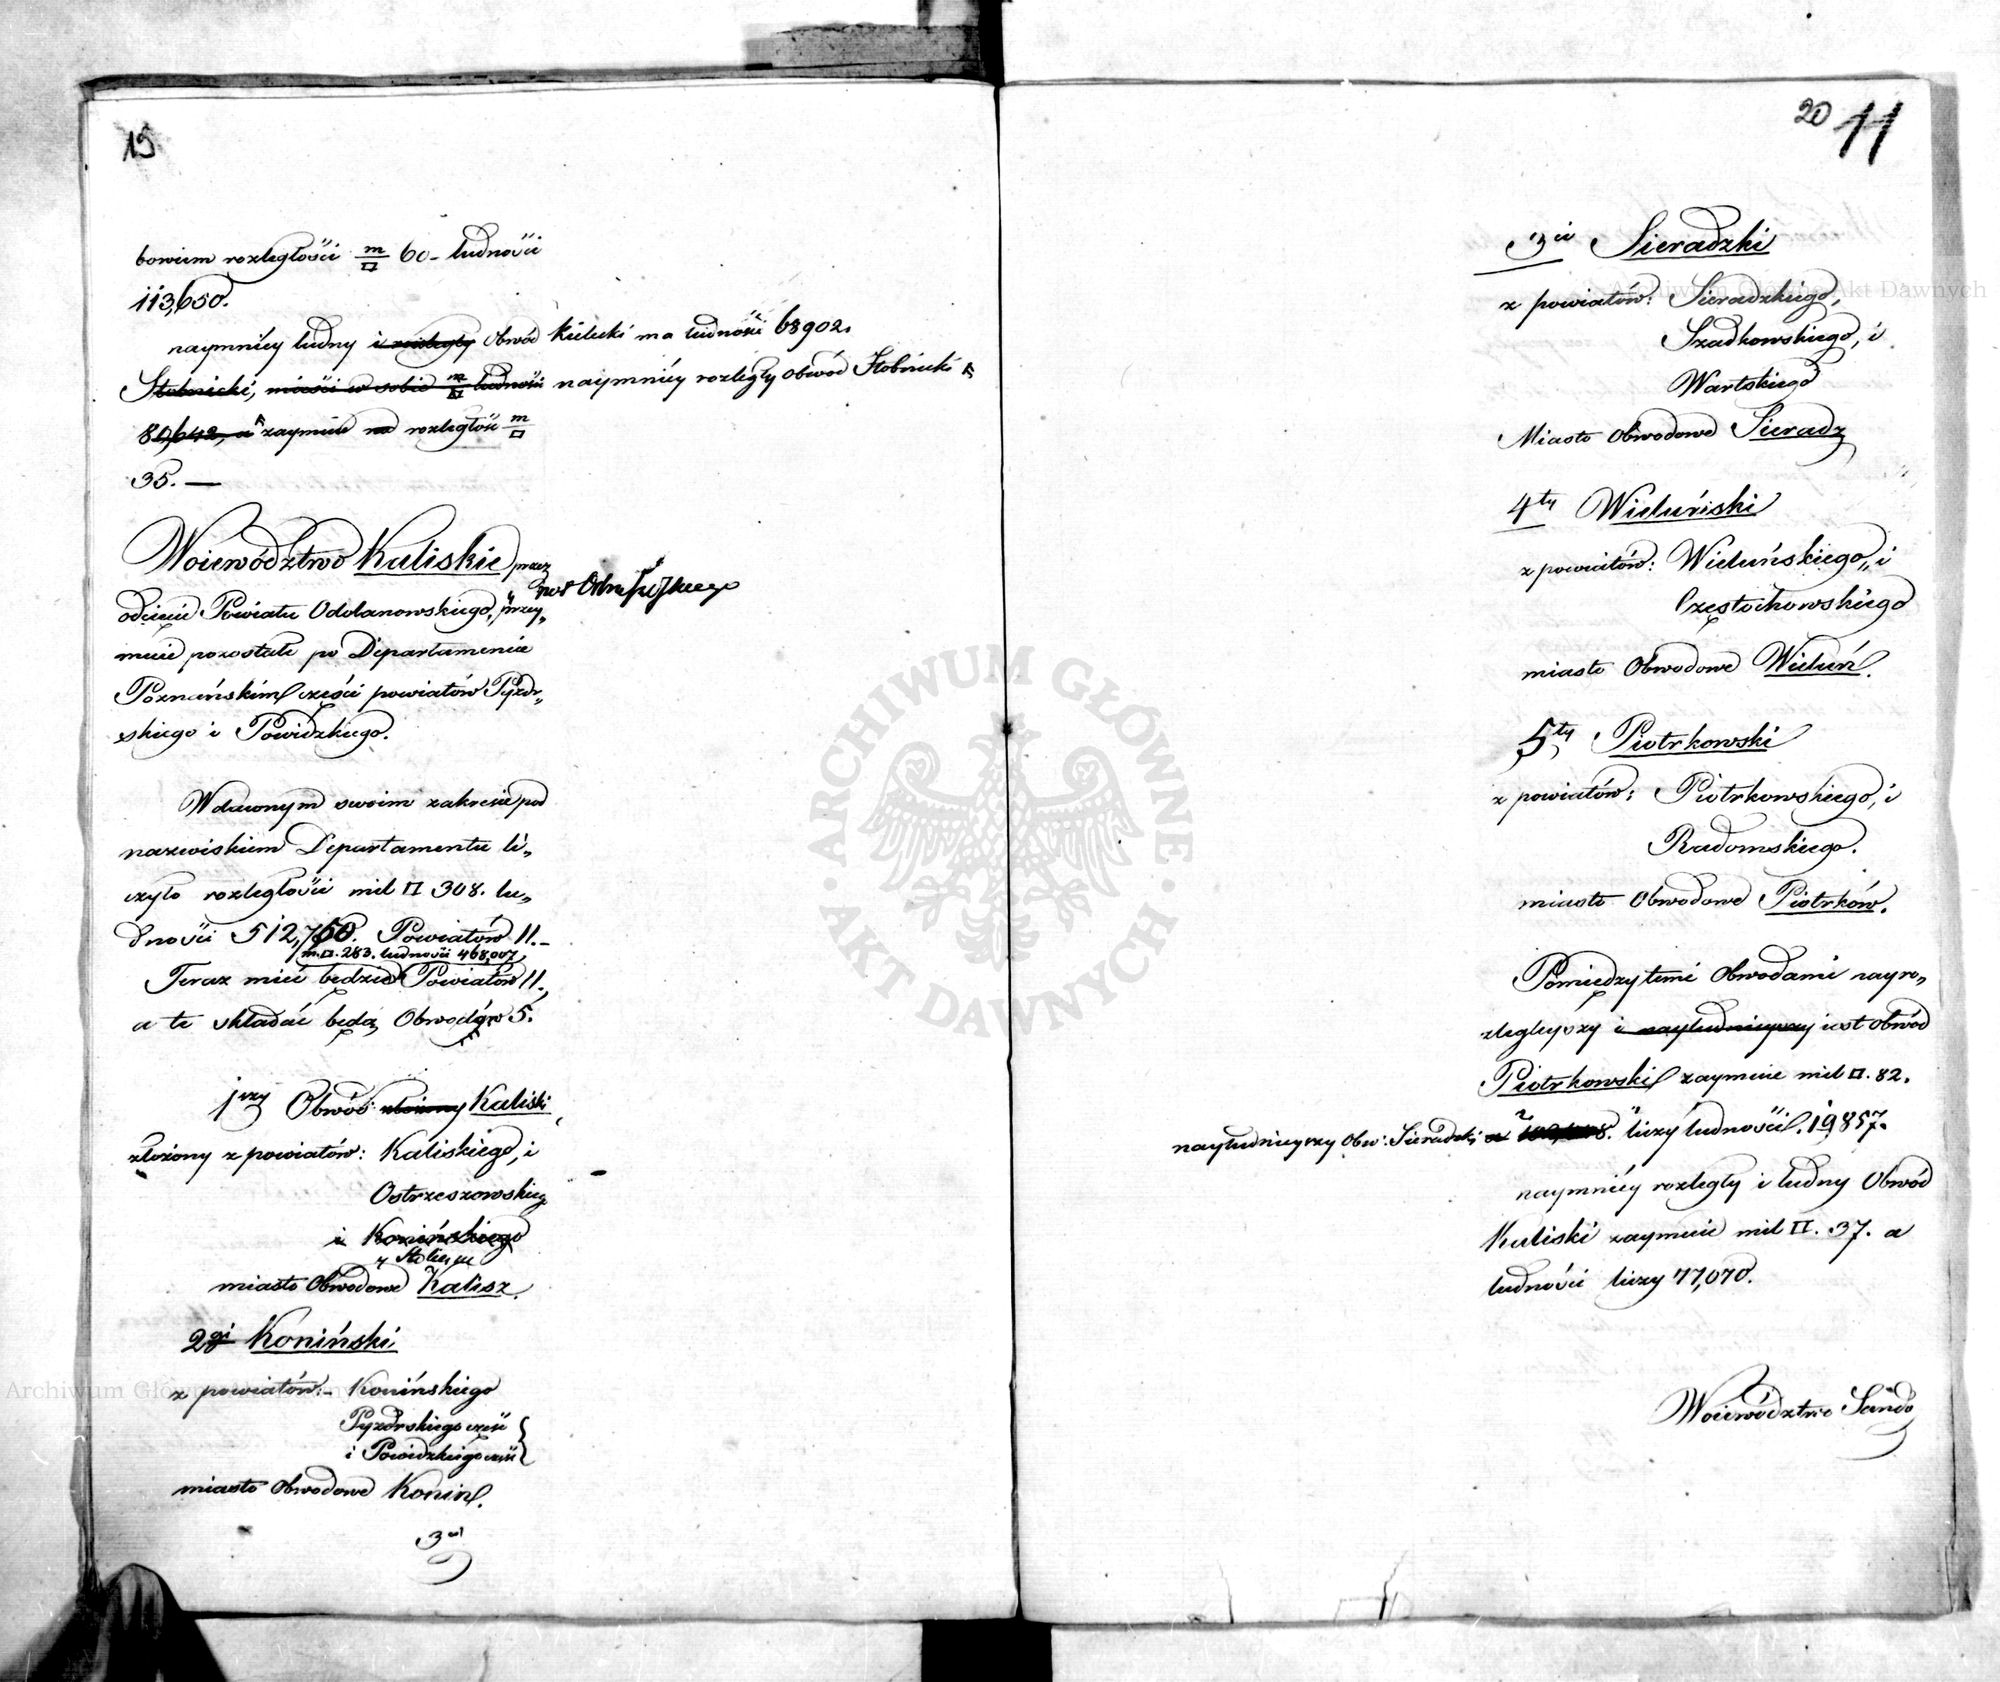 19
bowiem rozległości m/□ 60 – ludności
113,650.
naymniéy ludny i rozległy obwód Kielecki ma ludności 68902.
Stobnicki, mieści w sobie m/□ ludności naymniéy rozległy obwód Stobnicki
80,642, a zaymuie na rozległość m/□
35. —
Woiewództwo Kaliskie przez
odcięcie Powiatu Odolanowskiego, przy„
muie pozostałe po Departamencie
Poznańskim części powiatów Pyzdr„
skiego i Powidzkiego.
W dawnym swoim zakresie pod
nazwiskiem Departamentu li„
czyło rozległości mil □ 308. lu„
dności 512,760. Powiatów 11. –
m. □. 283. ludności 468,007,
Teraz mieć będzie Powiatów 11.,
a te składać będą Obwodów 5.
1szy Obwód złożony Kaliski
złożony z powiatów: Kaliskiego, i
Ostrzeszowskieg
i Konińskiego
miasto Obwodowe Kalisz.
2gi Koniński
z powiatów: – Konińskiego
Pyzdrskiego część
i Powidzkiego część
miasto Obwodowe Konin.
3ci
20 11
3ci Sieradzki
z powiatów: Sieradzkiego,
Szadkowskiego, i
Wartskiego
Miasto Obwodowe Sieradz
4ty Wieluński
z powiatów: Wieluńskiego, i
Częstochowskiego
miasto Obwodowe Wieluń.
5ty Piotrkowski
z powiatów: Piotrkowskiego, i
Radomskiego.
miasto Obwodowe Piotrków.
Pomiędzy temi Obwodami nayro„
zległeyszy i nayludnieyszy iest obwód
Piotrkowski zaymuie mil □. 82.
nayludnieyszy Obw: Sieradzki a liczy ludności. 19,857.
naymniéy rozległy i ludny Obwód
Kaliski zaymuie mil □. 37. a
ludności liczy 77,070.
Woiewództwo Sando
ARCHIWUM GŁÓWNE · AKT DAWNYCH ·
Archiwum Główne Akt Dawnych
Archiwum Główne Akt Dawnych